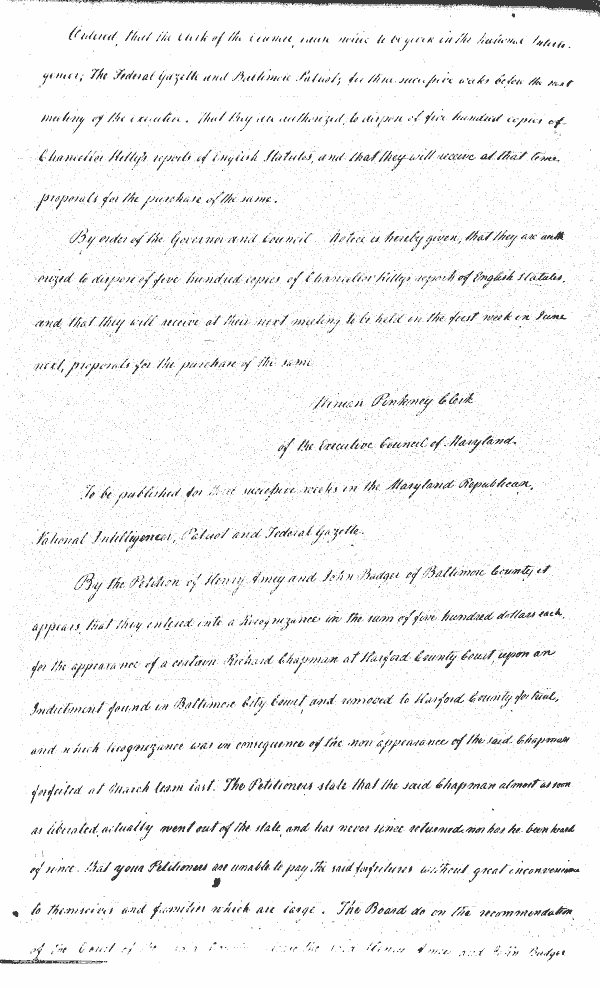 Ordered, that the Clerk of the Council cause notice to be given in the National Intelli-
gencer; The Federal Gazette and Baltimore Patriot; for three successive weeks before the next
meeting of the executive. That they are authorized to dispose of five hundred copies of
Chancellor Kilty's reports of English Statutes, and that they will receive at that time
proposals for the purchase of the same.
By order of the Governor and Council. Notice is hereby given, that they are auth
orized to dispose of five hundred copies of Chancellor Kilty's report of English Statutes.
and that they will receive at their next meeting to be held in the first week in June
next, proposals for the purchase of the same
Ninian Pinkney Clerk
of the Executive Council of Maryland.
To be published for three successive weeks in the Maryland Republican,
National Intelligencer, Patriot and Federal Gazette.
By the Petition of Henry Amey and John Badger of Baltimore County it
appears, that they entered into a Recognizance in the sum of five hundred dollars each,
for the appearance of a certain Richard Chapman at Harford County Court, upon an
Indictment found in Baltimore City Court, and removed to Harford County for trial,
and which Recognizance was in consequence of the non appearance of the said Chapman
forfeited at March term last. The Petitioners state that the said Chapman almost as soon
as liberated, actually went out of the state, and has never since returned, nor has he been heard
of since. That your Petitioners are unable to pay the said forfeitures without great inconvenience
to themselves and families which are large. The Board do on the recommendation
of the Court of the said the said Henry Amey and John Badger